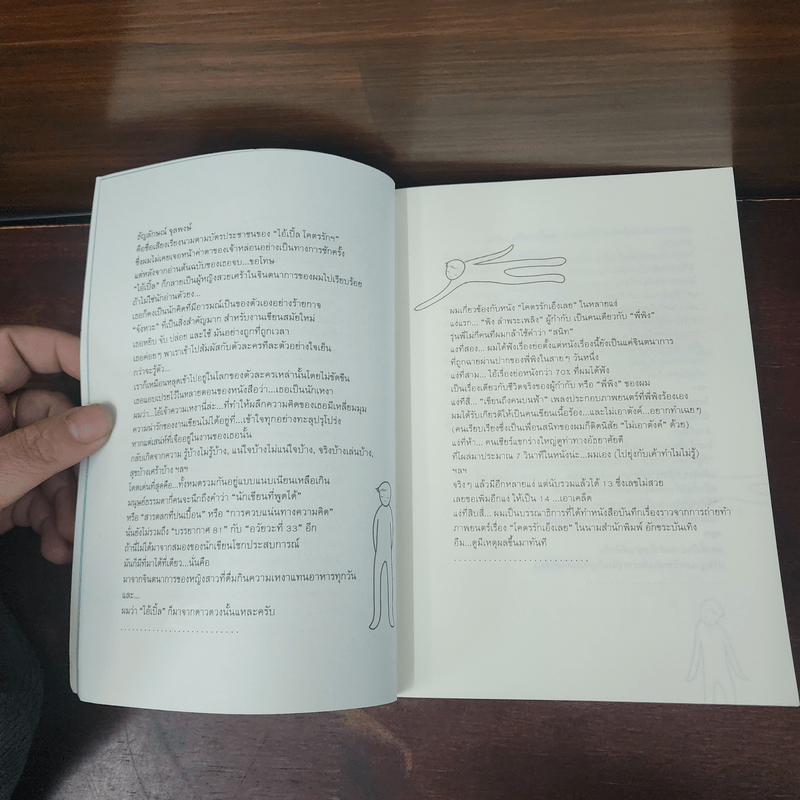 ธัญลักษณ์ จุลพงษ์
คือชื่อเสียงเรียงนามตามบัตรประชาชนของ "ไอ้เปิ้ล โคตรรักฯ"
ซึ่งผมไม่เคยเจอหน้าค่าตาของเจ้าหล่อนอย่างเป็นทางการซักครั้ง
แต่หลังจากอ่านต้นฉบับของเธอจบ...ขอโทษ
"ไอ้เปิ้ล" ก็กลายเป็นผู้หญิงสวยเศร้าในจินตนาการของผมไปเรียบร้อย
ถ้าไม่ใช่นักอ่านตัวยง...
เธอก็คงเป็นนักคิดที่มีอารมณ์เป็นของตัวเองอย่างร้ายกาจ
"จังหวะ" ที่เป็นสิ่งสำคัญมาก สำหรับงานเขียนสมัยใหม่
เธอหยิบ จับ ปล่อย และใช้ มันอย่างถูกที่ถูกเวลา
เธอค่อยๆ พาเราเข้าไปสัมผัสกับตัวละครทีละตัวอย่างใจเย็น
กว่าจะรู้ตัว...
เราก็เหมือนหลุดเข้าไปอยู่ในโลกของตัวละครเหล่านั้นโดยไม่ขัดขืน
เธอแอบเปรยไว้ในหลายตอนของหนังสือว่า...เธอเป็นนักเหงา
ผมว่า...ไอ้เจ้าความเหงานี่ล่ะ...ที่ทำให้ผลึกความคิดของเธอมีเหลี่ยมมุม
ความน่ารักของงานเขียนไม่ได้อยู่ที่...เข้าใจทุกอย่างทะลุปรุโปร่ง
หากแต่เสน่ห์ที่เจืออยู่ในงานของเธอนั้น
กลับเกิดจากความ รู้บ้างไม่รู้บ้าง, แน่ใจบ้างไม่แน่ใจบ้าง, จริงบ้างเล่นบ้าง,
สุขบ้างเศร้าบ้าง ฯลฯ
โดดเด่นที่สุดคือ...ทั้งหมดรวมกันอยู่แบบแนบเนียนเหลือเกิน
มนุษย์ธรรมดาก็คงจะนึกถึงคำว่า "นักเขียนที่พูดได้"
หรือ "สารตลกที่ปนเปื้อน" หรือ "การควบแน่นทางความคิด"
นั่นยังไม่รวมถึง "บรรยากาศ 81" กับ "อวัยวะที่ 33" อีก
ถ้านี่ไม่ได้มาจากสมองของนักเขียนโชกประสบการณ์
มันก็มีที่มาได้ที่เดียว...นั่นคือ
มาจากจินตนาการของหญิงสาวที่ดื่มกินความเหงาแทนอาหารทุกวัน
และ...
ผมว่า "ไอ้เปิ้ล" ก็มาจากดาวดวงนั้นแหละครับ
..........................
ผมเกี่ยวข้องกับหนัง "โคตรรักเอ็งเลย" ในหลายแง่
แง่แรก... "พิง ลำพระเพลิง" ผู้กำกับ เป็นคนเดียวกับ "พี่พิง"
รุ่นพี่ไม่กี่คนที่ผมกล้าใช้คำว่า "สนิท"
แง่ที่สอง... ผมได้ฟังเรื่องย่อตั้งแต่หนังเรื่องนี้ยังเป็นแค่จินตนาการ
ที่ถูกฉายผ่านปากของพี่พิงในสายๆ วันหนึ่ง
แง่ที่สาม... ไอ้เรื่องย่อหนังกว่า 70% ที่ผมได้ฟัง
เป็นเรื่องเดียวกับชีวิตจริงของผู้กำกับ หรือ "พี่พิง" ของผม
แง่ที่สี่... "เขียนถึงคนบนฟ้า" เพลงประกอบภาพยนตร์ที่พี่พิงร้องเอง
ผมได้รับเกียรติให้เป็นคนเขียนเนื้อร้อง...และไม่เอาตังค์...อยากทำเฉยๆ
(คนเรียบเรียงซึ่งเป็นเพื่อนสนิทของผมก็ติดนิสัย "ไม่เอาตังค์" ด้วย)
แง่ที่ห้า... คนเชียร์แขกร่างใหญ่ดูท่าทางอัธยาศัยดี
ที่โผล่มาประมาณ 7 วินาทีในหนังน่ะ...ผมเอง (ไปยุ่งกับเค้าทำไมไม่รู้)
ฯลฯ
จริงๆ แล้วมีอีกหลายแง่ แต่นับรวมแล้วได้ 13 ซึ่งเลขไม่สวย
เลยขอเพิ่มอีกแง่ ให้เป็น 14 ...เอาเคล็ด
แง่ที่สิบสี่... ผมเป็นบรรณาธิการที่ได้ทำหนังสือบันทึกเรื่องราวจากการถ่ายทำ
ภาพยนตร์เรื่อง "โคตรรักเอ็งเลย" ในนามสำนักพิมพ์ อักขระบันเทิง
อืม...ดูมีเหตุผลขึ้นมาทันที
..........................